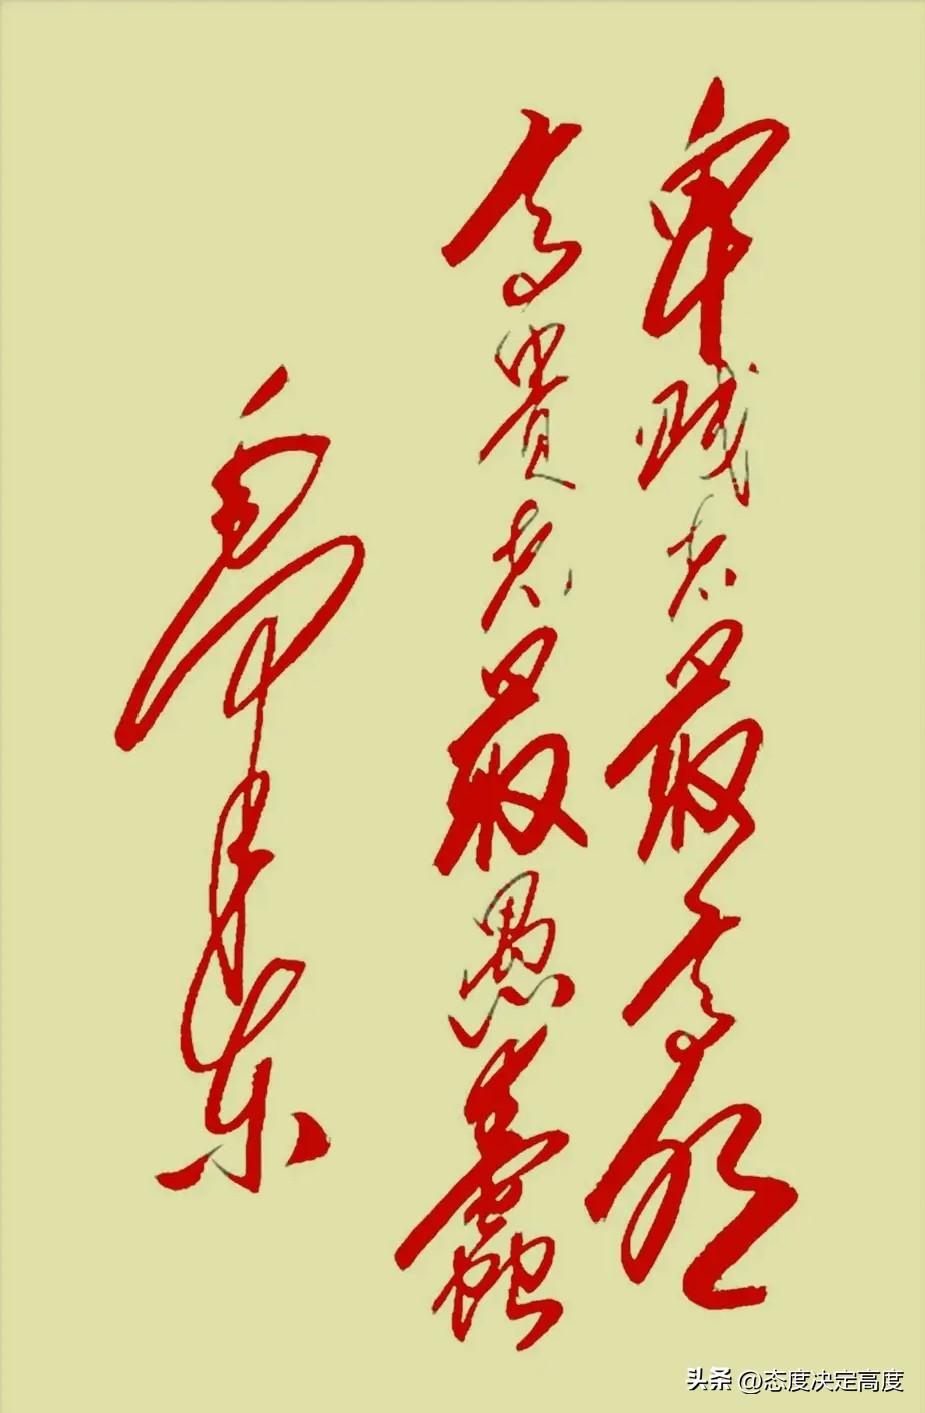 卑贱者最高明
高貴者最愚蠢
毛泽东
头条 @态度决定高度